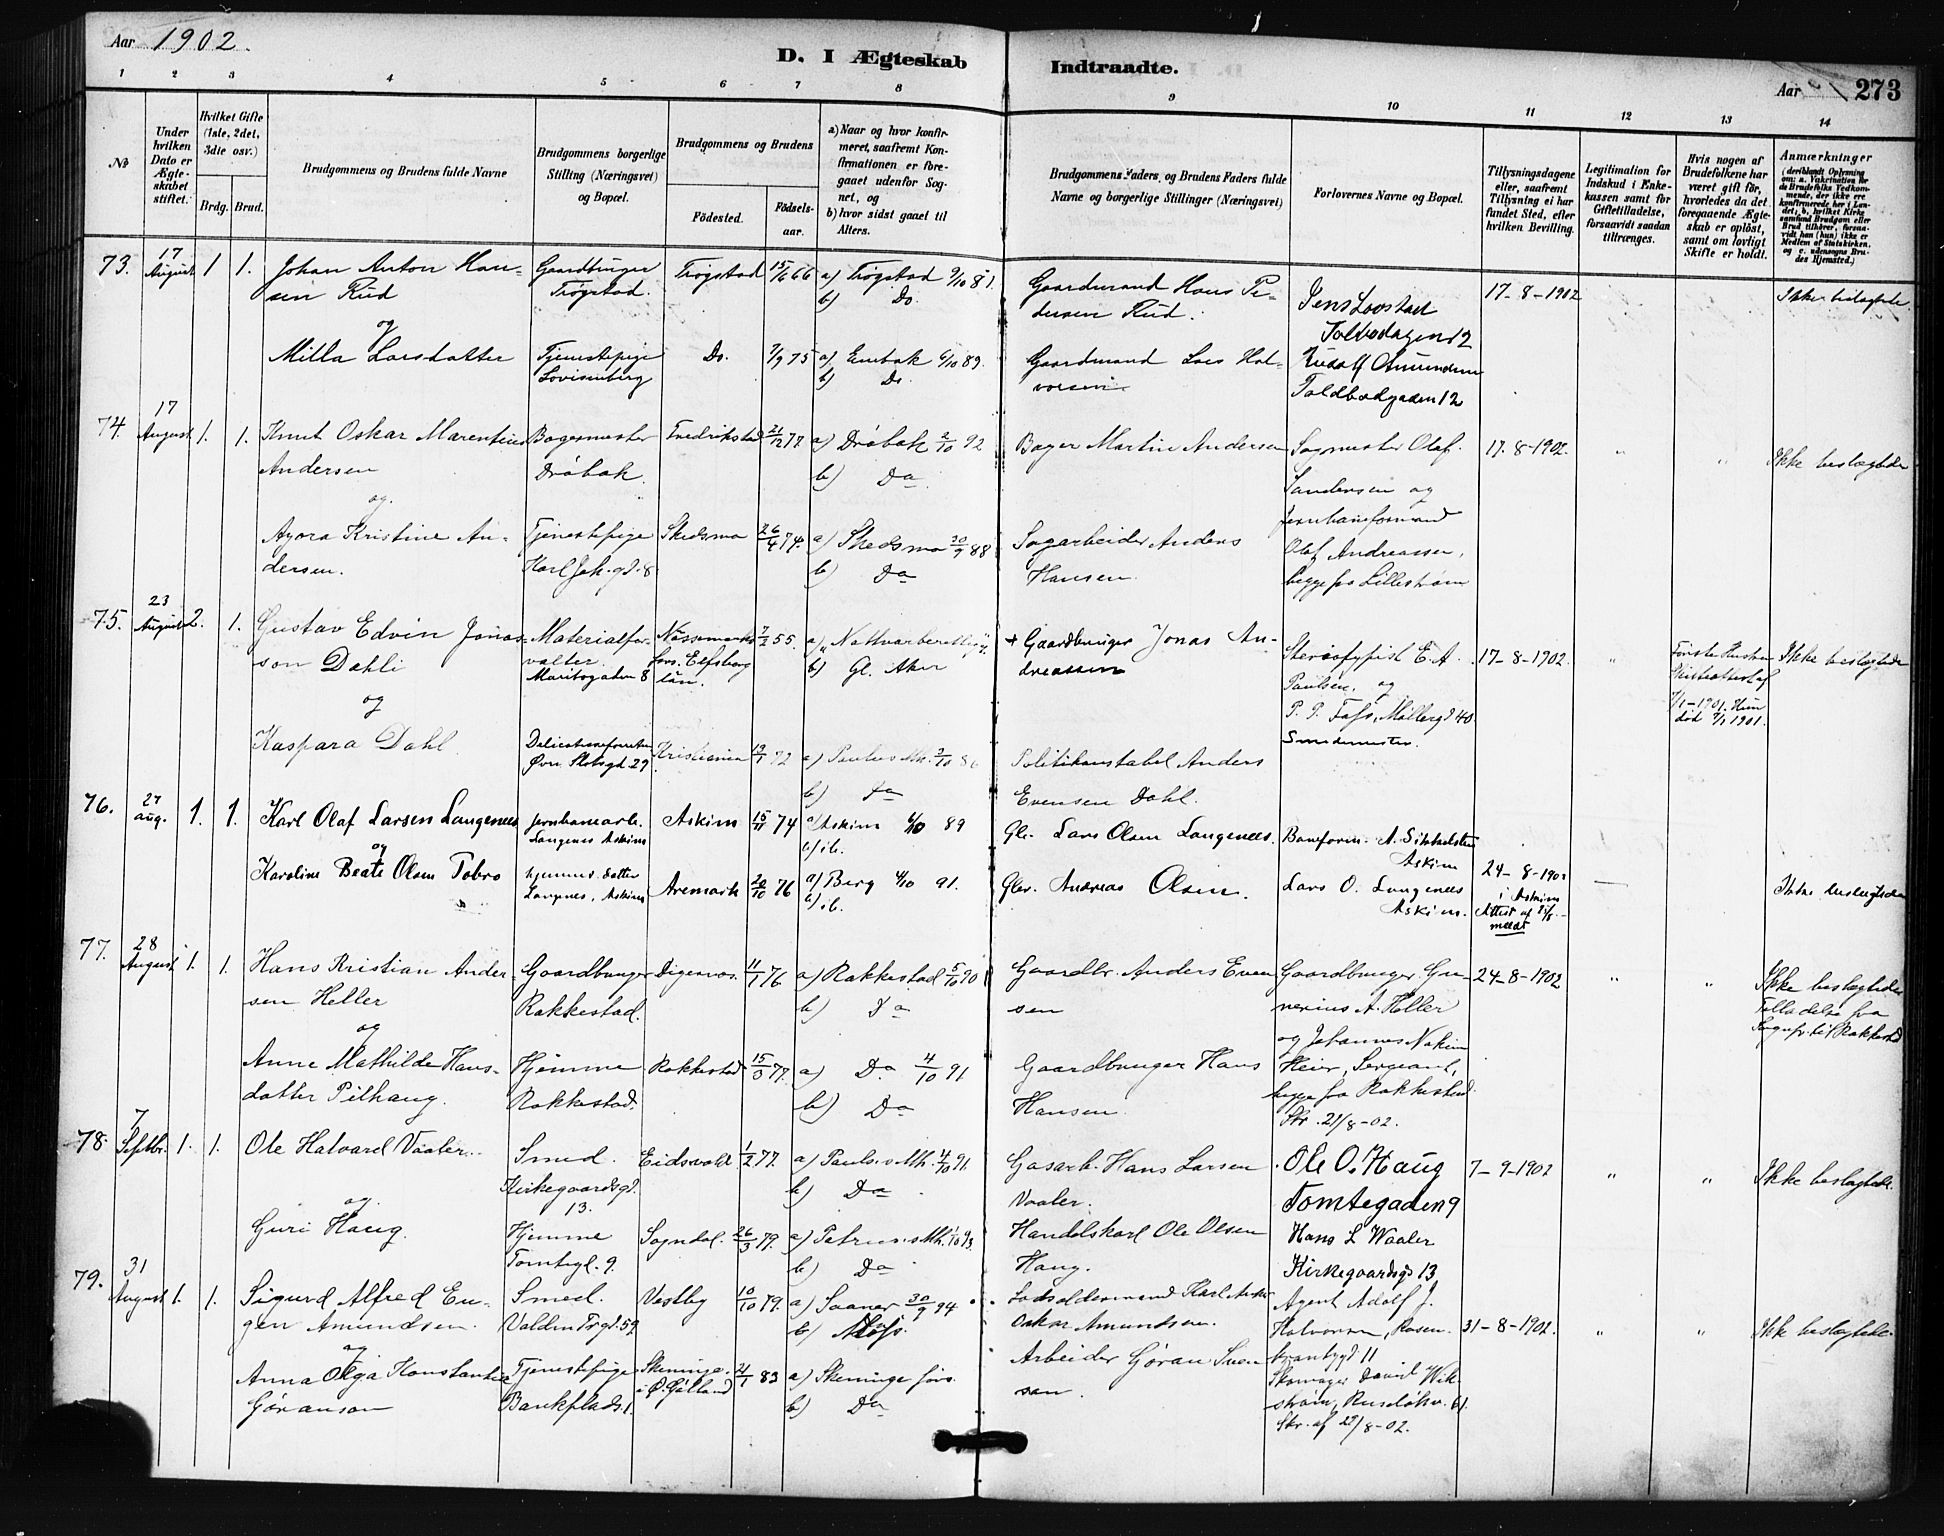 Aar 1902.
D. I Ægteskab Indtraadte.
Aar 273
1 2 3 4 5 6 7 8 9 10 11 12 13 14
No
Under hvilken Dato er Ægteskabet stiftet.
Hvilket Gifte (1ste, 2det, 3die osv.)
Brdg. Brud.
Brudgommens og Brudens fulde Navne
Brudgommens borgerlige Stilling (Næringsvei) og Bopæl.
Brudgommens og Brudens
Fødested. Fødselsaar.
a) Naar og hvor konfirmeret, saafremt Konfirmationen er foregaaet udenfor Sognet, og
b) hvor sidst gaaet til Alters.
Brudgommens Faders, og Brudens Faders fulde Navne og borgerlige Stillinger (Næringsvei)
Forlovernes Navne og Bopæl.
Tillysningsdagene eller, saafremt Tillysning ei har fundet Sted, efter hvilken Bevilling.
Legitimation for Indskud i Enkekassen samt for Giftetilladelse, forsaavidt saadan tiltrænges.
Hvis nogen af Brudefolkene har været gift før, hvorledes da det foregaaende Ægteskab er opløst, samt om lovligt Skifte er holdt.
Anmærkninger (deriblandt Oplysning om: a. Vakcination for de Brudefolks Vedkommende, der ikke ere konfirmerede her i Landet, b. hvilket Kirkesamfund Brudgom eller Brud tilhører, forsaavidt han (hun) ikke er Medlem af Statskirken, og c. udensogns Brudes Hjemsted.)
73. 17 August 1 1. Johan Anton Han- Gaardbruger Trøgstad 15/6 66 a) Trøgstad 2/10 81. Gaardmand Hans Pe- Jens Loostad 17-8-1902 Ikke beslægtede
sen Rud Trøgstad. b) Do. dersen Rud. Toldbodgaden 12
og
Milla Larsdatter Tjenestepige Do. 7/9 75 a) Enebak 6/10 89. Gaardmand Lars Hal- Rudolf Amundsen
Lovisenberg b) Do vorsen. Toldbodgaden 12
74. 17 August 1. 1. Knut Oskar Marentius Bagermester Fredrikstad 21/12 77 a) Drøbak 2/10 92 Bager Martin Andersen Sagmester Olaf 17-8-1902. " " Ikke beslægtede
Andersen Drøbak. b) Do. Sandersen og
og. Jernbaneformand
Agora Kristine An- Tjenestepige Skedsmo 26/4 74. a) Skedsmo 30/9 88 Sagarbeider Anders Olaf Andreassen,
dersen. Karl Joh. gd. 8 b) Do Hansen. begge fra Lillestrøm
75. 23 August 2. 1. Gustav Edvin Jonas- Materialfor- 7/2 55. a) b) Gl. Aker + Gaardbruger Jonas An- Stereotypist E. A. 17-8-1902. " Ikke beslægtede
son Dahli valter. förs. Elfsborg dreassen Paulsen, og
og Maribogaden 8 län. P. P. Foss, Møllergd 40
7/1-1901. Hun død 7/1 1901.
Kaspara Dahl. Kristiania 19/1 72 a) Paulus Mh. 2/10 86 Politikonstabel Anders Smedemester.
Øvre Slotsgd 29 b) Do Evensen Dahl.
76. 27 aug. 1. 1. Karl Olaf Larsen Langenees Jernbanearb. Askim 15/11 74 a) Askim 6/10 89 Gbr. Lars Olsen Langenees. Baneform. A. Sikkelsteen 24-8-1902 — Ikke beslægtede
og Langenes Askim b) ib. Askim i Askim
Karoline Beate Olsen Tobro hjemmev. datter Aremark 20/10 76 a) Berg 4/10 91. Gbr. Andreas Olsen. Lars O. Langenees Attest af
Langnes, Askim b) ib. Askim. meldt
77. 28 August 1. 1. Hans Kristian Ander- Gaardbruger Digernes. 11/1 76. a) Rakkestad 5/10 90 Gaardbr. Anders Even- Gaardbruger Gu- 24-8-1902 " " Ikke beslægtede
sen Heller Rakkestad. b) Do sen nerius A. Heller Tilladelse fra
og og Johannes Sognepr. til Rakkestad
Anne Mathilde Hans- Hjemme Rakkestad 15/3 77. a) Do. 4/10 91 Gaardbruger Hans Heier, Sergeant,
datter Pilhaug. Rakkestad. b) Do Hansen. begge fra Rakkestad
Skr. 21/8-02.
78. 7 Septbr. 1. 1. Ole Halvard Vaaler. Smed. Eidsvold 1/2 77. a) Paulus Mh. 4/10 91. Gasarb. Hans Larsen Ole O. Haug 7-9-1902 " " Ikke beslægtede.
Kirkegaardsgd. 13. b) Do Vaaler. Tomtegaden 9
og
Guri Haug. Hjemme Sogndal. 26/3 79. a) Petrus Mh. Handelskarl Ole Olsen Hans L Waaler
Tomtegd. 9. b) Do Haug. Kirkegaardsgd 13
79. 31 August 1. 1. Sigurd Alfred Eu- Smed. Vestby 10/10 79. a) Saaner 30/9 94 Lodsoldermand Karl Agent Adolf J. 31-8-1902. " " Ikke beslægtede.
gen Amundsen. b) Moss. Oskar Amundsen. Halvorsen, Rosen-
og krantzgd 11
Anna Olga Konstantia Tjenestepige Skeninge 21/1 83 a) Skeninge förs. Arbeider Göran Sven- Skomager David Wik-
Göranson Bankplads 1. i Ö. Götland b) Do son. strøm, Ruseløkv. 61.
Skr. af 29/8-02.